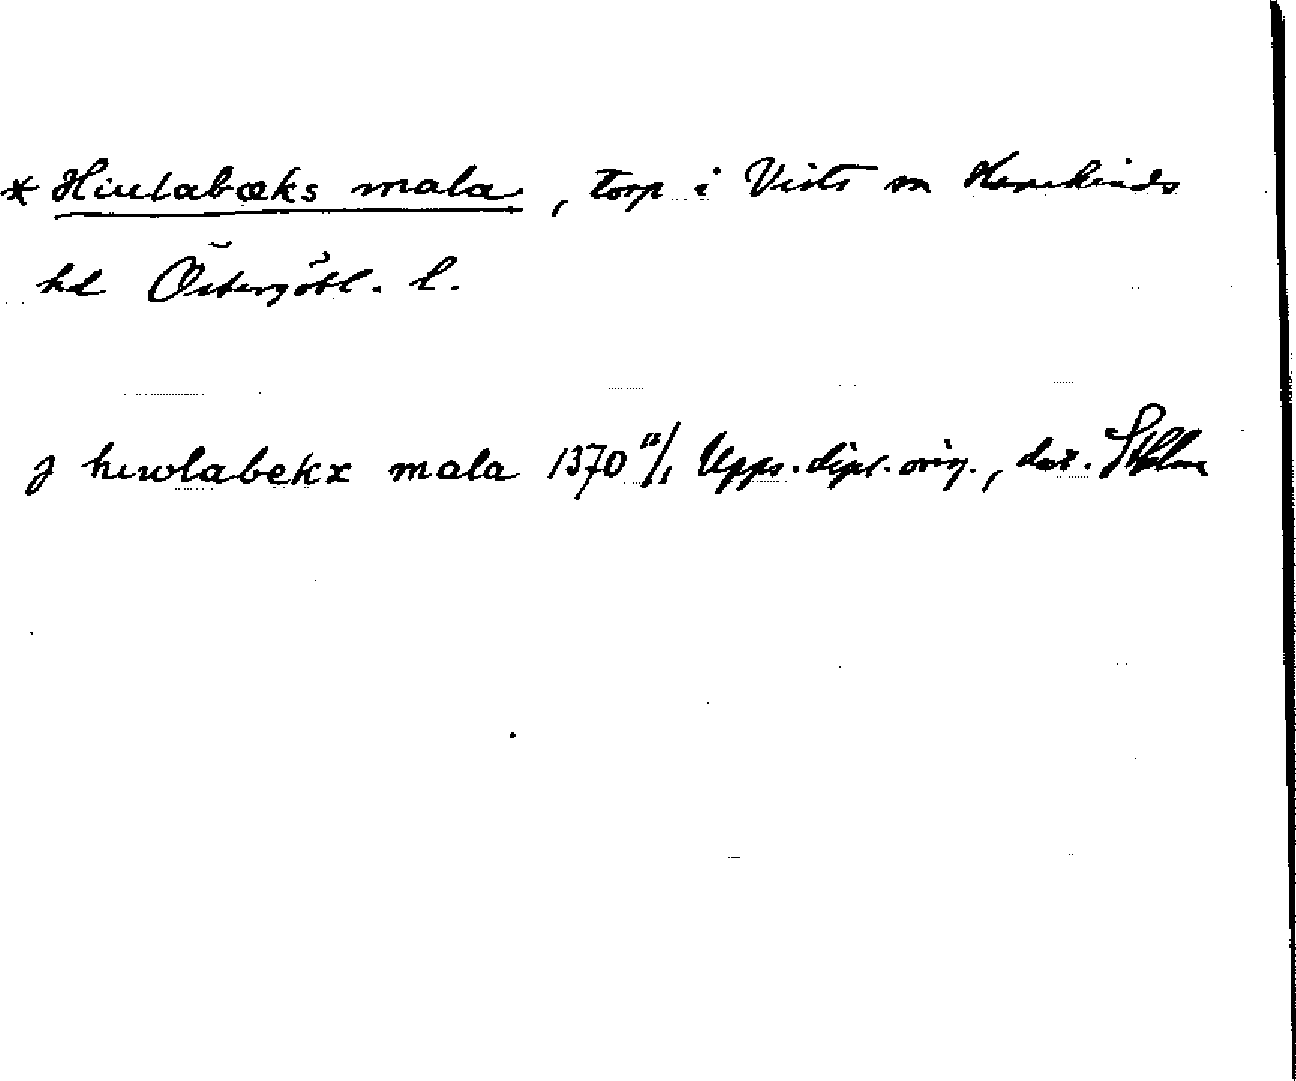 * Hiulabæks mala, torp i Vists sn Hanekinds
hd Östergötl. l.
j hiwlabekx mala 1370 /1 Upps. dipl. orig., dat. Sthlm